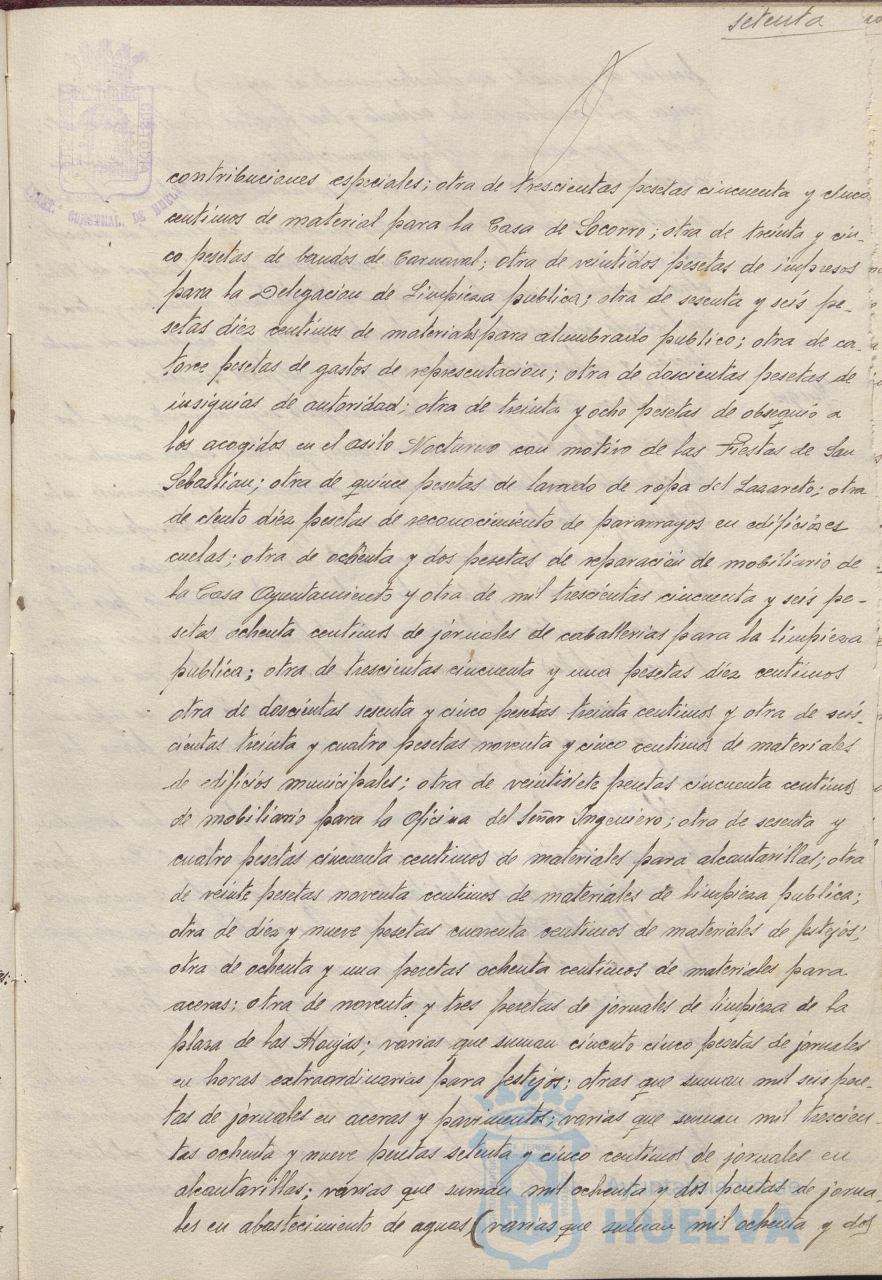 setenta
contribuciones especiales; otra de trescientas pesetas cincuenta y cinco
centimos de material para la Casa de Socorro; otra de treinta y cin-
co pesetas de bandos de Carnaval; otra de veintidos pesetas de impresos
para la Delegacion de Limpieza publica; otra de sesenta y seis pe-
setas diez centimos de materiales para alumbrado publico; otra de ca-
torce pesetas de gastos de representacion; otra de doscientas pesetas de
insignias de autoridad; otra de treinta y ocho pesetas de obsequio a
los acogidos en el asilo Nocturno con motivo de las Fiestas de San
Sebastian; otra de quince pesetas de lavado de ropa del Lazareto; otra
de ciento diez pesetas de reconocimiento de pararrayos en edificios es
cuelas; otra de ochenta y dos pesetas de reparación de mobiliario de
la Casa Ayuntamiento y otra de mil trescientas cincuenta y seis pe-
setas ochenta centimos de jornales de caballerias para la limpieza
publica; otra de trescientas cincuenta y una pesetas diez centimos
otra de doscientas sesenta y cinco pesetas treinta centimos y otra de seis-
cientas treinta y cuatro pesetas noventa y cinco centimos de materiales
de edificios municipales; otra de veintisiete pesetas cincuenta centimos
de mobiliario para la Oficina del Señor Ingeniero; otra de sesenta y
cuatro pesetas cincuenta centimos de materiales para alcantarillas; otra
de veinte pesetas noventa centimos de materiales de limpieza publica;
otra de diez y nueve pesetas cuarenta centimos de materiales de festejos;
otra de ochenta y una pesetas ochenta centimos de materiales para
aceras; otra de noventa y tres pesetas de jornales de limpieza de la
plaza de las Monjas; varias que suman cincento cinco pesetas de jornales
en horas extraordinarias para festejos; otras que suman mil seis pese-
tas de jornales en aceras y pavimentos; varias que suman mil trescien-
tas ochenta y nueve pesetas setenta y cinco centimos de jornales en
alcantarillas; varias que suman mil ochenta y dos pesetas de jorna-
les en abastecimiento de aguas, (varias que suman mil ochenta y dos
HUELVA